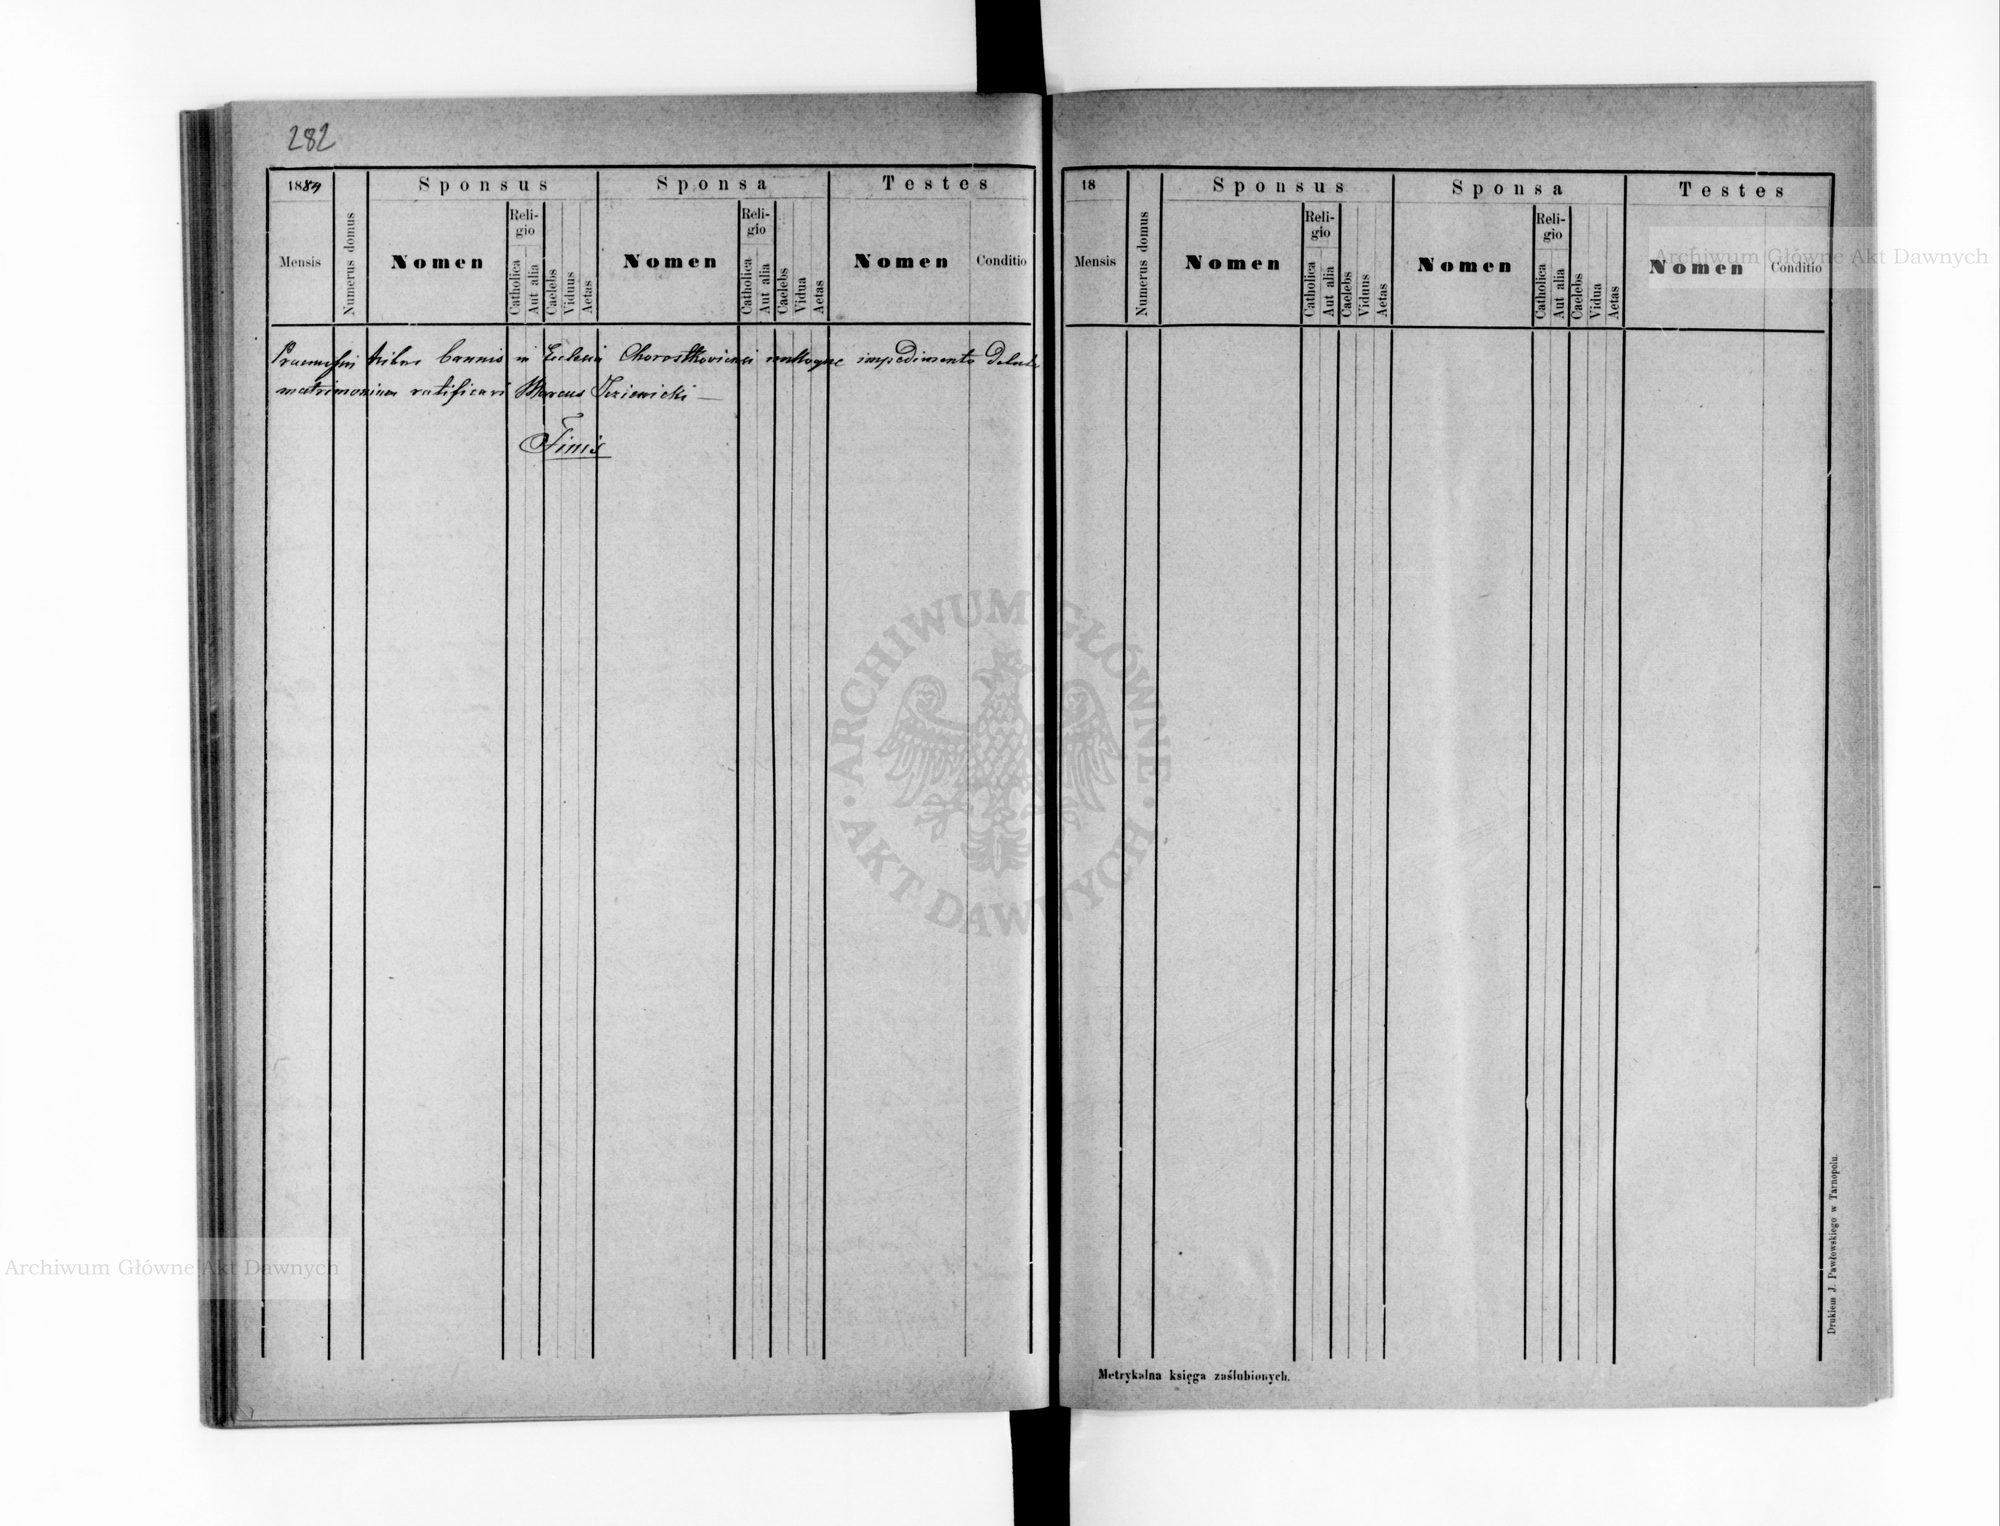 282
1889 Sponsus Sponsa Testes
Mensis Numerus domus Nomen Religio Catholica Aut alia Caelebs Viduus Aetas Nomen Religio Catholica Aut alia Caelebs Vidua Aetas Nomen Conditio
Praemissis tribus bannis in Eclesia Chorostkoviensi nulloque impedimento
matrimonium ratificavi Marcus
Finis
18 Sponsus Sponsa Testes
Mensis Numerus domus Nomen Religio Catholica Aut alia Caelebs Viduus Aetas Nomen Religio Catholica Aut alia Caelebs Vidua Aetas Nomen Conditio
Metrykalna księga zaślubionych.
Drukiem J. Pawłowskiego w Tarnopolu.
Archiwum Główne Akt Dawnych
ARCHIWUM GŁÓWNE
AKT DAWNYCH
Archiwum Główne Akt Dawnych